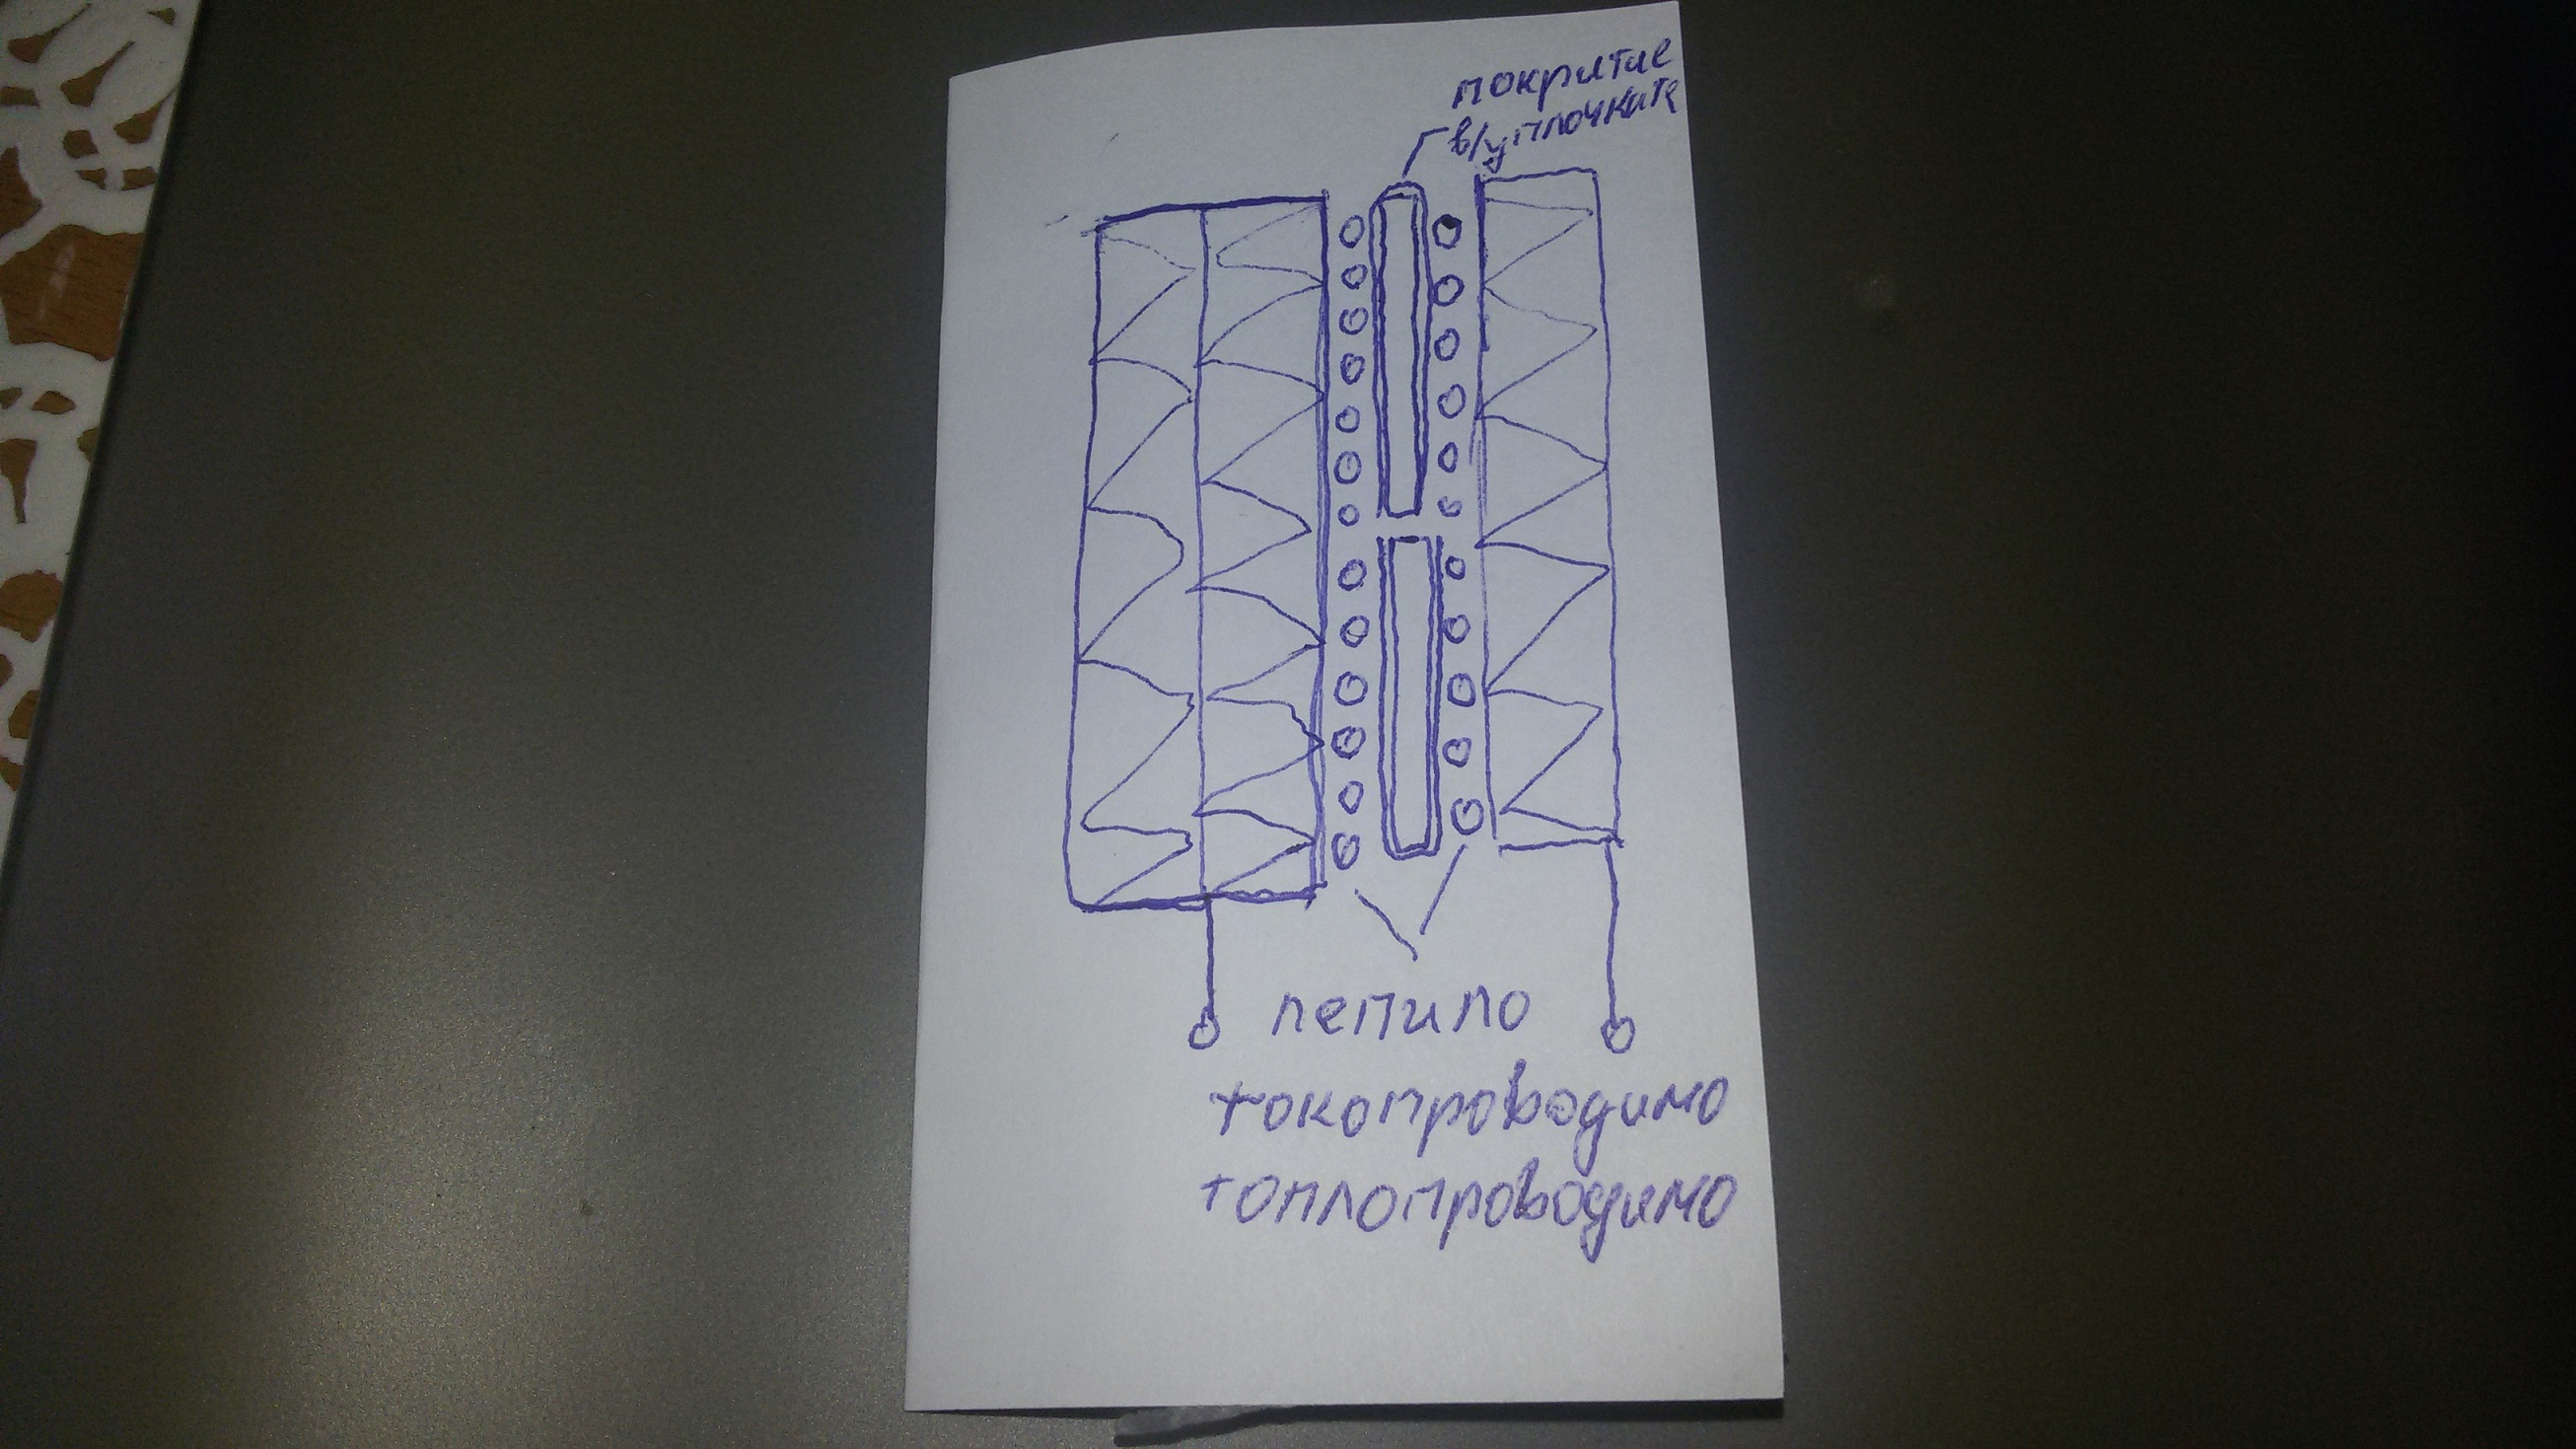 покритие
в/у плочките
лепило
токопроводимо
топлопроводимо